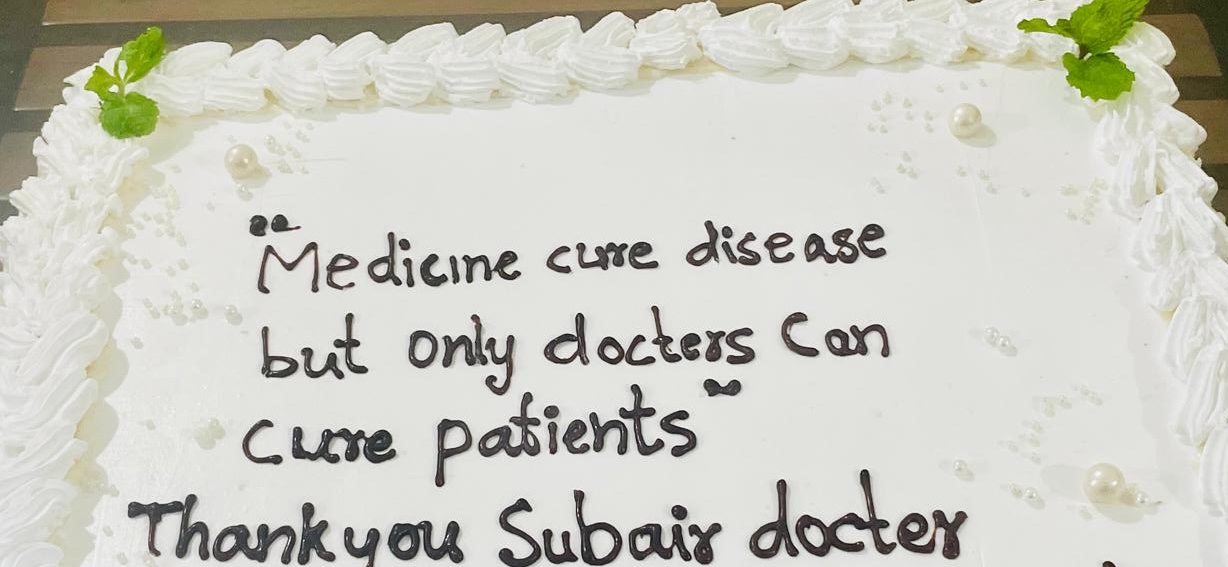 "Medicine cure disease
but only docters Can
cure patients"
Thank you Subair docter